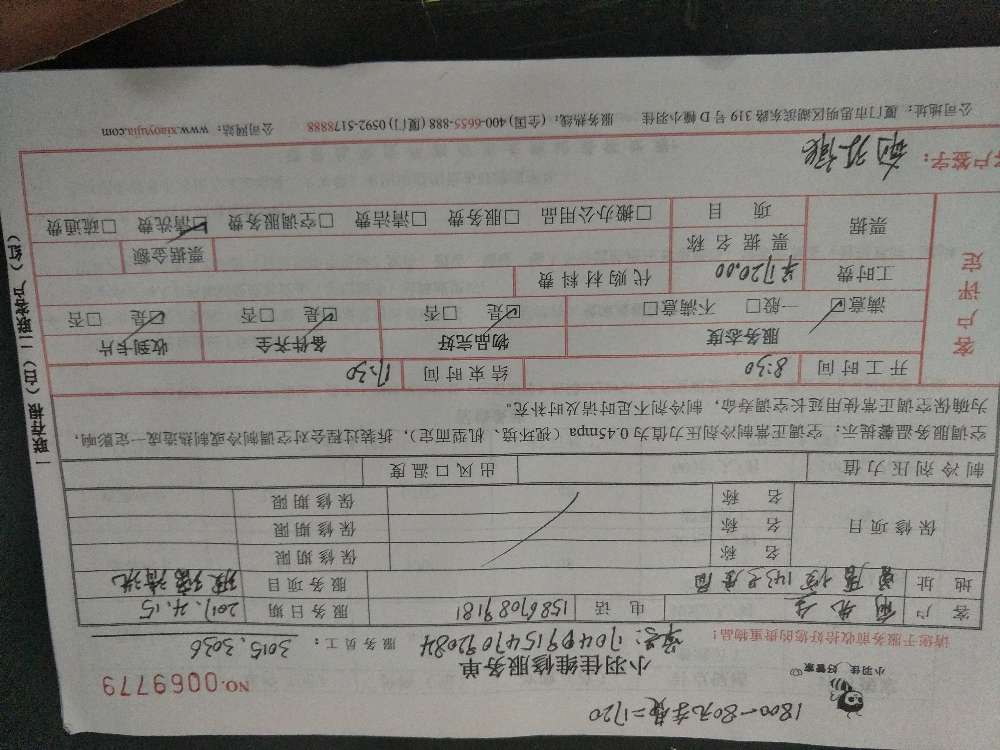 1800-80元车费=1720
小羽佳 好管家
小羽佳维修服务单
NO.0069779
单号:1704091547092084 服务员工:3015,3036
请您于服务前收拾好您的贵重物品!
客 户 电 话 15867089181 服务日期 2017.4.15
地 址 服务项目 玻璃清洗
保修项目 名 称 保修期限
名 称 保修期限
名 称 保修期限
制冷剂压力值 出风口温度
空调服务温馨提示:空调正常制冷剂压力值为0.45mpa(视环境、机型而定),拆装过程会对空调制冷或制热造成一定影响,
为确保空调正常使用延长空调寿命,制冷剂不足时请及时补充。
客户评定
开工时间 8:30 结束时间 17:30
服务态度 物品完好 备件齐全 收到卡片
满意☑ 一般□ 不满意□ ☑是 □否 ☑是 □否 ☑是 □否
工时费 ¥1720.00 代购材料费
票据 票据名称 票据金额
项 目 □搬办公用品 □服务费 □清洁费 □空调服务费 ☑清洗费 □疏通费
客户签字:
公司地址:厦门市思明区湖滨东路319号D幢小羽佳 服务热线:(全国)400-6655-888 (厦门)0592-5178888 公司网站:www.xiaoyujia.com
一联存根(白)二联客户(红)